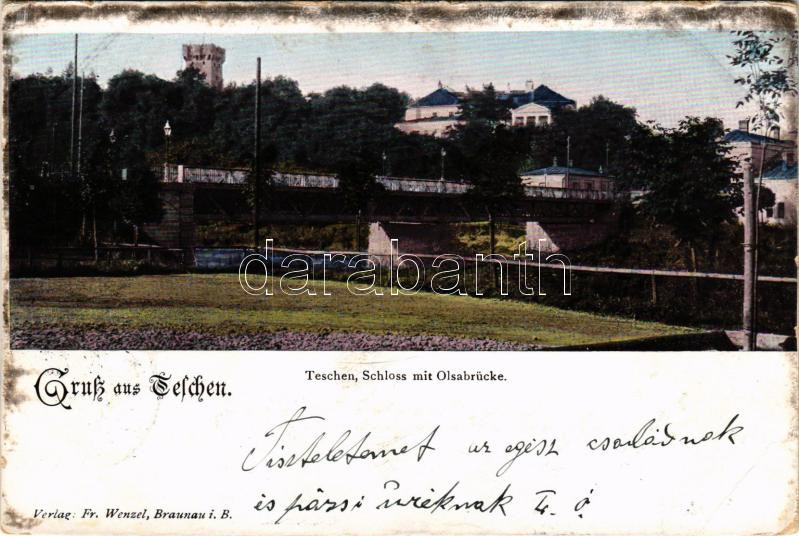 darabanth
Gruß aus Teschen.
Teschen, Schloss mit Olsabrücke.
Tiszteletemet az egész családnak
és pázsi úréknak
Verlag: Fr. Wenzel, Braunau i. B.